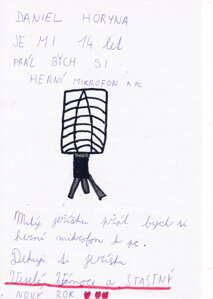 DANIEL HORYNA
JE MI 14 let
PŘÁL BÝCH SI
HERNÍ MIKROFON K PC
Milý ježíšku přál bych si
herní mikrofon k pc.
Děkuji ti ježíšku.
Veselé Vánoce a ŠŤASTNÝ
NOVÝ ROK